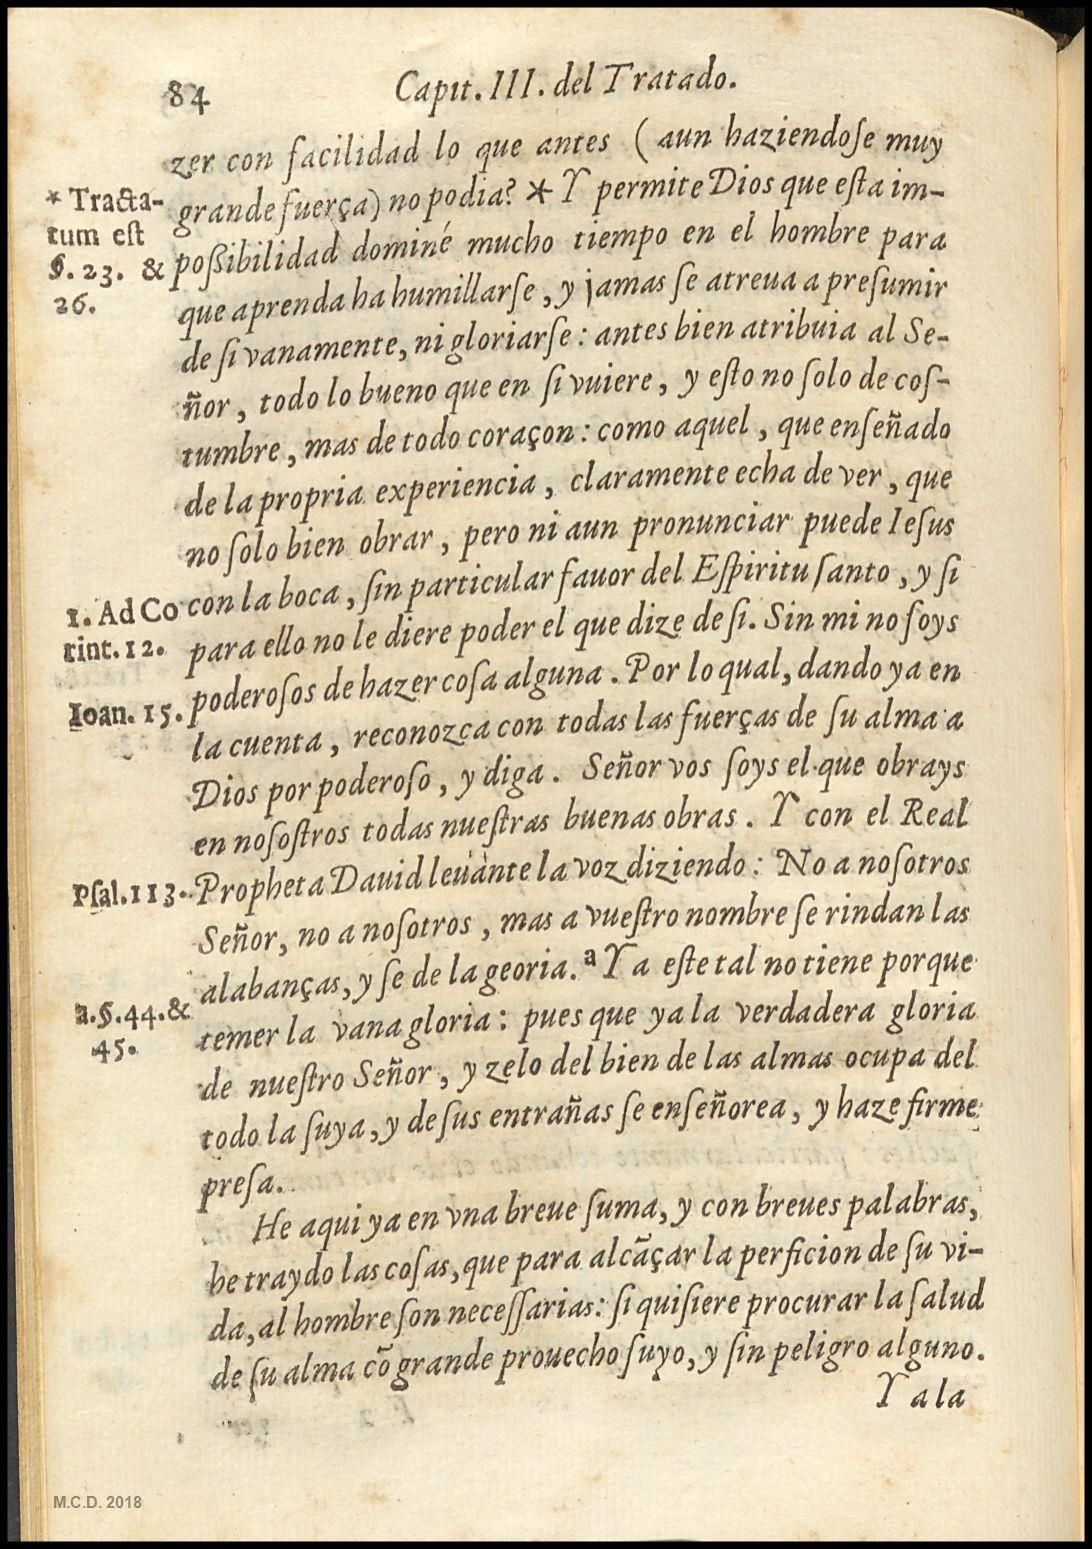 84
Capit. III. del Tratado.
zer con facilidad lo que antes ( aun haziendoſe muy
* Tracta-
grande fuerça) no podia? * Y permite Dios que eſta im-
tum eſt
poßibilidad dominé mucho tiempo en el hombre para
§. 23. &
que aprenda ha humillarſe, y jamas ſe atreua a preſumir
26.
de ſi vanamente, ni gloriarſe : antes bien atribuia al Se-
ñor, todo lo bueno que en ſi vuiere, y eſto no ſolo de coſ-
tumbre, mas de todo coraçon : como aquel, que enſeñado
de la propria experiencia, claramente echa de ver, que
no ſolo bien obrar, pero ni aun pronunciar puede Ieſus
1. Ad Co
con la boca, ſin particular fauor del Eſpiritu ſanto, y ſi
rint. 12.
para ello no le diere poder el que dize de ſi. Sin mi no ſoys
Ioan. 15.
poderoſos de hazer coſa alguna. Por lo qual, dando ya en
la cuenta, reconozca con todas las fuerças de ſu alma a
Dios por poderoſo, y diga. Señor vos ſoys el que obrays
en noſoſtros todas nueſtras buenas obras. Y con el Real
Pſal. 113.
Propheta Dauid leuànte la voz diziendo : No a noſotros
Señor, no a noſotros, mas a vueſtro nombre ſe rindan las
alabanças, y ſe de la georia. a Y a eſte tal no tiene porque
a. §. 44. &
temer la vana gloria : pues que ya la verdadera gloria
45.
de nueſtro Señor, y zelo del bien de las almas ocupa del
todo la ſuya, y de ſus entrañas ſe enſeñorea, y haze firme
preſa.
He aqui ya en vna breue ſuma, y con breues palabras,
he traydo las coſas, que para alcãçar la perficion de ſu vi-
da, al hombre ſon neceſſarias : ſi quiſiere procurar la ſalud
de ſu alma cõ grande prouecho ſuyo, y ſin peligro alguno.
Y a la
M.C.D. 2018